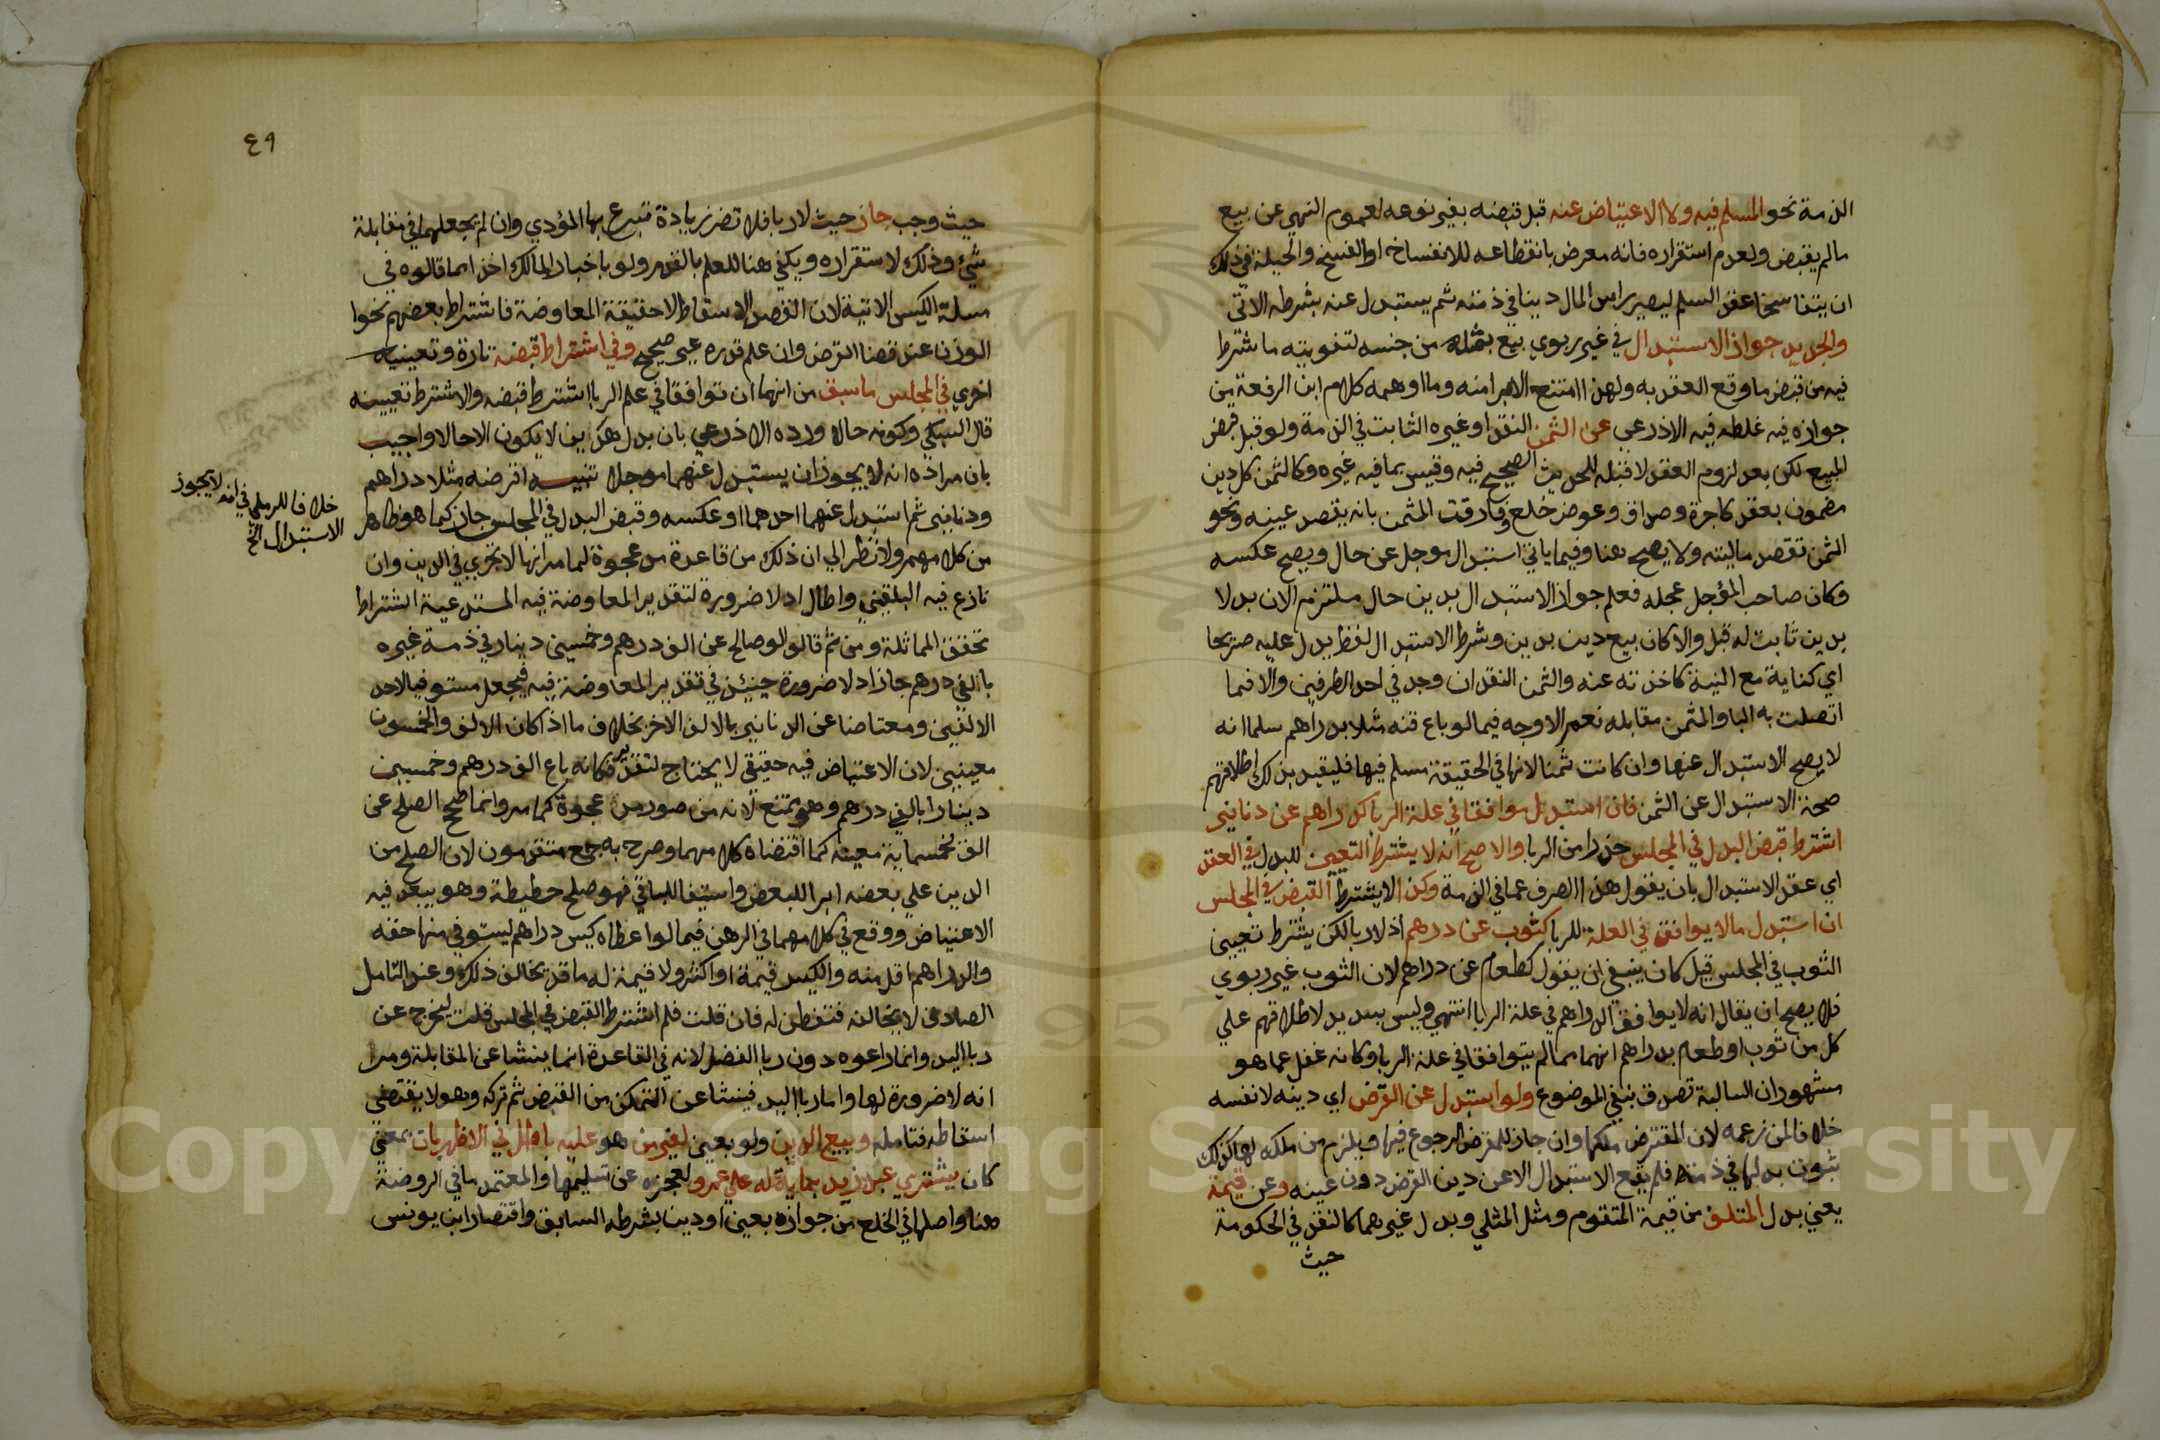 الذمة نحو المسلم فيه ولا الاعتياض عنه قبل قبضه بغير نوعه لعموم النهي عن بيع
مالم يقبض ولعدم استقراره فانه معرض بانقطاعه للانفساخ او الفسخ والحيلة في ذلك
ان يتفاسخا عقد السلم ليصير راس المال دينا في ذمته ثم يستبدل عنه بشرطه الاتي
والجديد جواز الاستبدال في غير ربوي بيع بمثله من جنسه لتفويته ما شرط
فيه من قبض ما وقع العقد به ولهذا امتنع الابرا منه وما اوهمه كلام ابن الرفعة من
جوازه فيه غلطه فيه الاذرعي عن الثمن النقد او غيره الثابت في الذمة ولو قبل قبض
المبيع لكن بعد لزوم العقد لا قبله للحديث الصحيح فيه وقيس بما فيه غيره وكالثمن كل دين
مضمون بعقد كاجرة وصداق وعوض خلع وفارقت المثمن بانه يقصد عينه ونحو
الثمن تقصد ماليته ولا يصح هنا وفيما ياتي استبدال موجل عن حال ويصح عكسه
وكان صاحب المؤجل عجله فعلم جواز الاستبدال بدين حال ملتزم الان بدلا
بدين ثابت له قبل والا كان بيع دين بدين وشرط الاستبدال لفظ يدل عليه صريحا
اي كناية مع النية كاخذته عنه والثمن النقد ان وجد في احد الطرفين والا فما
اتصلت به البا والمثمن مقابله نعم الاوجه فيما لو باع قنه مثلا بدراهم سلما انه
لا يصح الاستبدال عنها وان كانت ثمنا لانها في الحقيقة مسلم فيها فليقيد بذلك اطلاقهم
صحة الاستبدال عن الثمن فان استبدل موافقا في علة الربا كدراهم عن دنانير
اشترط قبض البدل في المجلس حذرا من الربا والاصح انه لا يشترط التعيين للبدل في العقد
اي عقد الاستبدال بان يقول هذا الصرف عما في الذمة وكذا لا يشترط القبض في المجلس
ان استبدل مالا يوافق في العلة للربا كثوب عن درهم اذ لا ربا لكن يشترط تعيين
الثوب في المجلس قيل كان ينبغي ان يقول كطعام عن دراهم لان الثوب غير ربوي
فلا يصح ان يقال انه لا يوافق الدراهم في علة الربا انتهي وليس بسديد لاطلاقهم علي
كل من ثوب او طعام بدراهم انهما مما لم يتوافقا في علة الربا وكانه غفل عما هو
مشهور ان السالبة تصدق بنفي الموضوع ولو استبدل عن القرض اي دينه لا نفسه
خلافا لمن زعمه لان المقترض ملكها وان جاز للمقرض الرجوع فيها ويلزم من ملكه لها كذلك
ثبوت بدلها في ذمته فلم يقع الاستبدال الا عن دين القرض دون عينه وعن قيمة
يعني بدل المتلف من قيمة المتقوم ومثل المثلي وبدل غيرهما كالنقد في الحكومة
حيث
٤٩
حيث وجب جاز حيث لا ربا فلا تضر زيادة تبرع بها المؤدي وان لم يجعلها في مقابلة
شيء وذلك لاستقراره ويكفي هنا للعلم بالقدر ولو باخبار المالك اخذا مما قالوه في
مسلة الكيس الاتية لان القصد الاسقاط لا حقيقة المعاوضة فاشتراط بعضهم نحوا
الوزن عند قضا القرض وان علم قدره غير صحيح وفي اشتراط قبضه تارة وتعيينه
اخري في المجلس ما سبق من انهما ان توافقا في علم الربا اشترط قبضه والا اشترط تعيينه
قال السبكي وكونه حالا ورده الاذرعي بان بدل هذين لا يكون الا حالا واجيب
بان مراده انه لا يجوز ان يستبدل عنهما موجلا تنبيه اقرضه مثلا دراهم
ودنانير ثم استبدل عنهما احدهما او عكسه وقبض البدل في المجلس جاز كما هو ظاهر
من كلامهم ولا نظر الي ان ذلك من قاعدة مد عجوة لما مر انها لا تجري في الدين وان
نازع فيه البلقيني واطال اذ لا ضرورة لتقدير المعاوضة فيه المستدعية اشتراط
تحقق المماثلة ومن ثم قالوا لو صالح عن الف درهم وخمسين دينار في ذمة غيره
بالفي درهم جاز اذ لا ضرورة حينئذ في تقدير المعاوضة فيه فيجعل مستوفيا لاحد
الالفين ومعتاضا عن الدنانير بالالف الاخر بخلاف ما اذا كان الالف والخمسون
معينين لان الاعتياض فيه حقيقي لا يحتاج لتقدير فكانه باع الف درهم وخمسين
دينارا بالفي درهم وهو ممتنع لانه من صور مد عجوة كما مر وانما صح الصلح عن
الف بخمسماية معينة كما اقتضاه كلامهما وصرح به جمع متقدمون لان الصلح من
الدين علي بعضه ابرا للبعض واستيفا للباقي فهو صلح حطيطة وهو يبعد فيه
الاعتياض ووقع في كلامهما في الرهن فيما لو اعطاه كيس دراهم ليستوفي منها حقه
والدراهم اقل منه والكيس قيمة او اكثر ولا قيمة له ما قد يخالف ذلك وعند التامل
الصادق لا يخالفه فتفطن له فان قلت فلم اشترط القبض في المجلس قلت ليخرج عن
ربا اليد وانما راعوه دون ربا الفضل لانه في القاعدة انما ينشا عن المقابلة ومر
انه لا ضرورة لها واما ربا اليد فينشا عن التمكن من القبض ثم تركه وهو لا يقتضي
اسقاطه فتامله وبيع الدين ولو بعين لغير من هو عليه باطل في الاظهر بان يعني
كان يشتري عبد زيد بماية له علي عمرو لعجزه عن تسليمها والمعتمد ما في الروضة
هنا واصلها في الخلع من جوازه بعين او دين بشرطه السابق واقتصار ابن يونس
خلافا للرملي في انه لا يجوز
الاستبدال الخ
Copyright © King Saud University